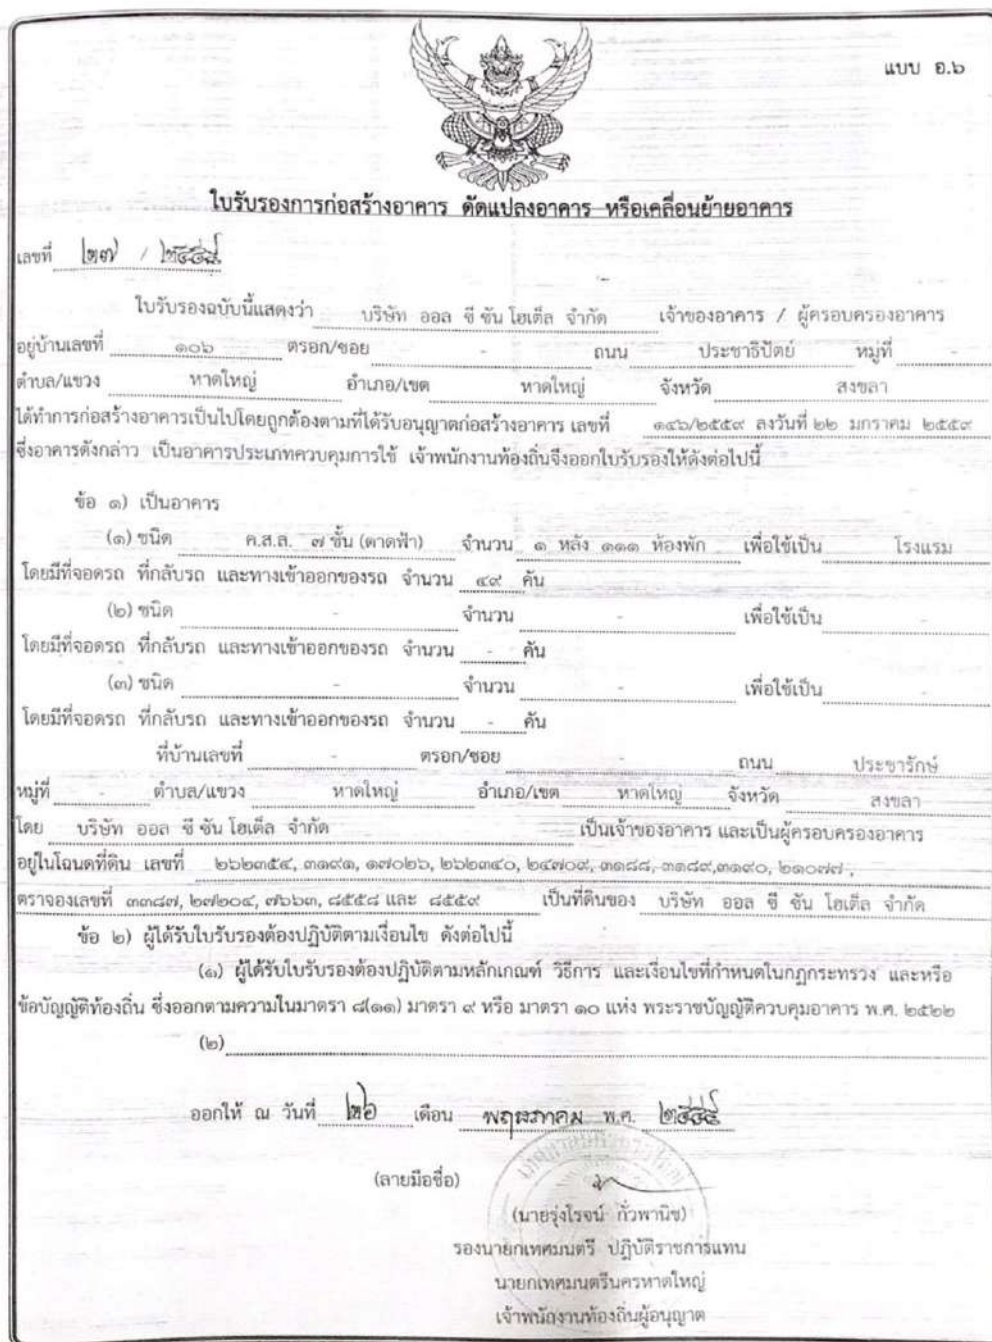 แบบ อ.๖
ใบรับรองการก่อสร้างอาคาร ดัดแปลงอาคาร หรือเคลื่อนย้ายอาคาร
เลขที่ ๒๗ /
ใบรับรองฉบับนี้แสดงว่า บริษัท ออล ซี ซัน โฮเต็ล จำกัด เจ้าของอาคาร / ผู้ครอบครองอาคาร
อยู่บ้านเลขที่ ๑๐๖ ตรอก/ซอย - ถนน ประชาธิปัตย์ หมู่ที่ -
ตำบล/แขวง หาดใหญ่ อำเภอ/เขต หาดใหญ่ จังหวัด สงขลา
ได้ทำการก่อสร้างอาคารเป็นไปโดยถูกต้องตามที่ได้รับอนุญาตก่อสร้างอาคาร เลขที่ ๑๔๖/๒๕๕๙ ลงวันที่ ๒๒ มกราคม ๒๕๕๙
ซึ่งอาคารดังกล่าว เป็นอาคารประเภทควบคุมการใช้ เจ้าพนักงานท้องถิ่นจึงออกใบรับรองให้ดังต่อไปนี้
ข้อ ๑) เป็นอาคาร
(๑) ชนิด ค.ส.ล. ๗ ชั้น (ดาดฟ้า) จำนวน ๑ หลัง ๑๑๑ ห้องพัก เพื่อใช้เป็น โรงแรม
โดยมีที่จอดรถ ที่กลับรถ และทางเข้าออกของรถ จำนวน ๔๙ คัน
(๒) ชนิด - จำนวน - เพื่อใช้เป็น -
โดยมีที่จอดรถ ที่กลับรถ และทางเข้าออกของรถ จำนวน - คัน
(๓) ชนิด - จำนวน - เพื่อใช้เป็น -
โดยมีที่จอดรถ ที่กลับรถ และทางเข้าออกของรถ จำนวน - คัน
ที่บ้านเลขที่ - ตรอก/ซอย - ถนน ประชารักษ์
หมู่ที่ - ตำบล/แขวง หาดใหญ่ อำเภอ/เขต หาดใหญ่ จังหวัด สงขลา
โดย บริษัท ออล ซี ซัน โฮเต็ล จำกัด เป็นเจ้าของอาคาร และเป็นผู้ครอบครองอาคาร
อยู่ในโฉนดที่ดิน เลขที่ ๒๖๒๓๕๔, ๓๑๙๑, ๑๗๐๒๖, ๒๖๒๓๔๐, ๒๔๗๐๙, ๓๑๘๘, ๓๑๘๙,๓๑๙๐, ๒๑๐๗๗ ,
ตราจองเลขที่ ๓๓๘๗, ๒๗๒๐๔, ๗๖๖๓, ๘๕๕๘ และ ๘๕๕๙ เป็นที่ดินของ บริษัท ออล ซี ซัน โฮเต็ล จำกัด
ข้อ ๒) ผู้ได้รับใบรับรองต้องปฏิบัติตามเงื่อนไข ดังต่อไปนี้
(๑) ผู้ได้รับใบรับรองต้องปฏิบัติตามหลักเกณฑ์ วิธีการ และเงื่อนไขที่กำหนดในกฎกระทรวง และหรือ
ข้อบัญญัติท้องถิ่น ซึ่งออกตามความในมาตรา ๘(๑๑) มาตรา ๙ หรือ มาตรา ๑๐ แห่ง พระราชบัญญัติควบคุมอาคาร พ.ศ. ๒๕๒๒
(๒)
ออกให้ ณ วันที่ ๒๖ เดือน พฤษภาคม พ.ศ.
(ลายมือชื่อ)
(นายรุ่งโรจน์ กั่วพานิช)
รองนายกเทศมนตรี ปฏิบัติราชการแทน
นายกเทศมนตรีนครหาดใหญ่
เจ้าพนักงานท้องถิ่นผู้อนุญาต